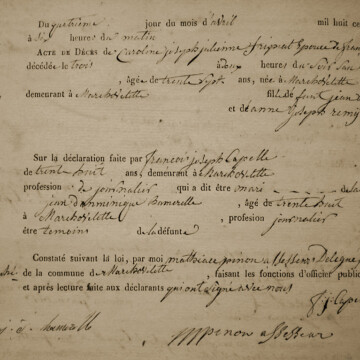 Du quatrième jour du mois d'avril mil huit ce
à six heures du matin
ACTE DE DÉCÈS de Caroline joseph julienne fripiat Epouse de fran
décédée le trois à deux heures du Soir, sur
, âgée de trente Sept ans, née à Marchovelette
demeurant à Marchovelette fille de feu jean
et de anne joseph remy
Sur la déclaration faite par francois joseph Capelle
de trente huit ans, demeurant à Marchovelette
profession de journalier qui a dit être mari de la
jean dominique humerelle , âgé de trente huit
à Marchovelette , profession journalier
être temoins de la défunte
Constaté suivant la loi, par moi mathieu pinon assesseur Délégué
de la commune de Marchovelette, faisant les fonctions d'officier public
et après lecture faite aux déclarants qui ont signé avec nous
f j Cape
j. d. humerelle
M pinon assesseur